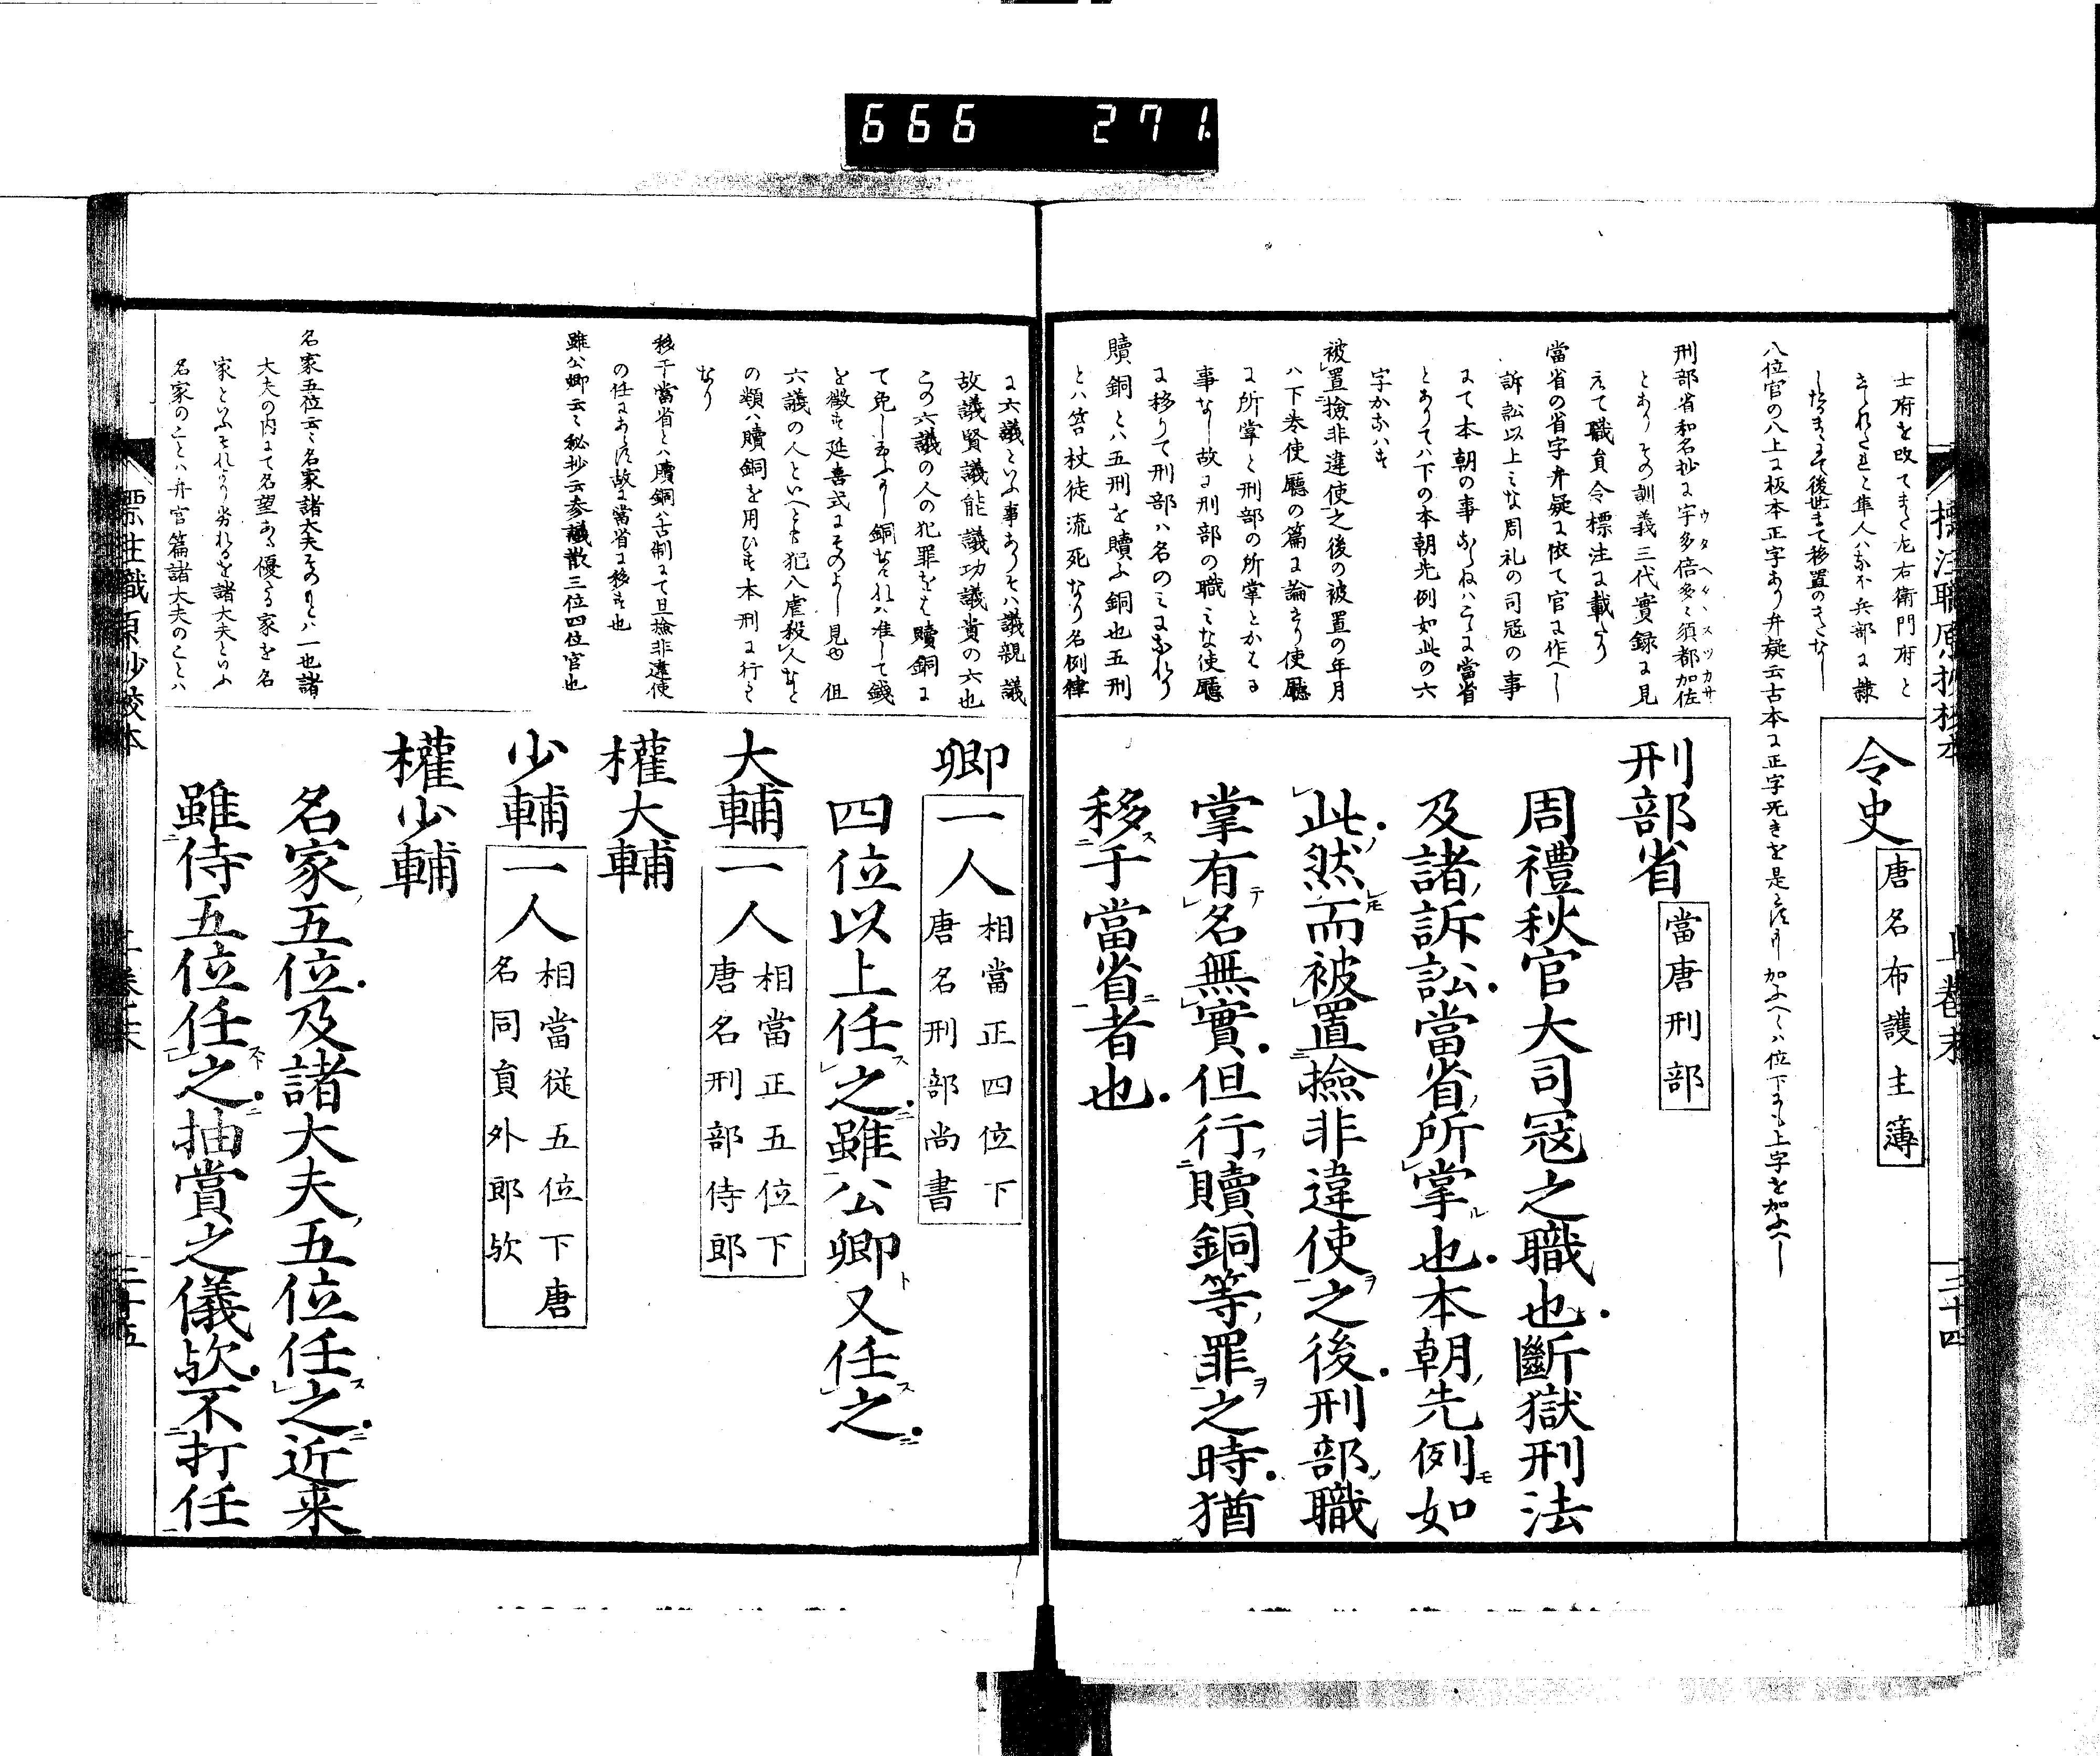 666 271
標注職原抄校本 上巻末 三十四
士府を改てまた左右衛門府と
八位官の八上に板本正字あり弁疑云古本に正字
刑部省和名抄に宇多倍多々須都加佐
とありその訓義三代實録に見
えて職員令標注に載たり
當省の省字弁疑に依て官に作へし
訴訟以上みな周礼の司冦の事
にて本朝の事
とありてハ下の本朝先例如此の六
字かなハす
被置撿非違使之後の被置の年月
ハ下巻使廳の篇に論たり使廳
に所掌と刑部の所掌とかはる
事なし故に刑部の職みな使廳
に移りて刑部ハ名のみになれり
贖銅とハ五刑を贖ふ銅也五刑
とハ笞杖徒流死なり名例律
令史 唐名布護主簿
刑部省 當唐刑部
周禮秋官大司冦之職也斷獄刑法
及諸訴訟當省所掌也本朝先例如
此然而被置撿非違使之後刑部職
掌有名無實但行贖銅等罪之時猶
移于當省者也
に六議といふ事ありそハ議親議
故議賢議能議功議貴の六也
この六議の人の犯罪をは贖銅に
て免し給ふ
を徴す延喜式にそのよし見ゆ但
六議の人といへとも犯八虐殺人なと
の類ハ贖銅を用ひす本刑に行ふ
なり
移于當省とハ贖銅ハ古制にて且撿非違使
の任にあらす故に當省に移す也
雖公卿云々秘抄云参議散三位四位官也
名家五位云々名家諸大夫そのもとハ一也諸
大夫の内にて名望ある優なる家を名
家といふそれより劣れるを諸大夫といふ
名家のことハ弁官篇諸大夫のことハ
卿 一人 相當正四位下 唐名刑部尚書
四位以上任之雖公卿又任之
大輔 一人 相當正五位下 唐名刑部侍郎
權大輔
少輔 一人 相當従五位下唐 名同員外郎欤
權少輔
名家五位及諸大夫五位任之近来
雖侍五位任之抽賞之儀欤不打任
標注職原抄校本 上巻末 三十五